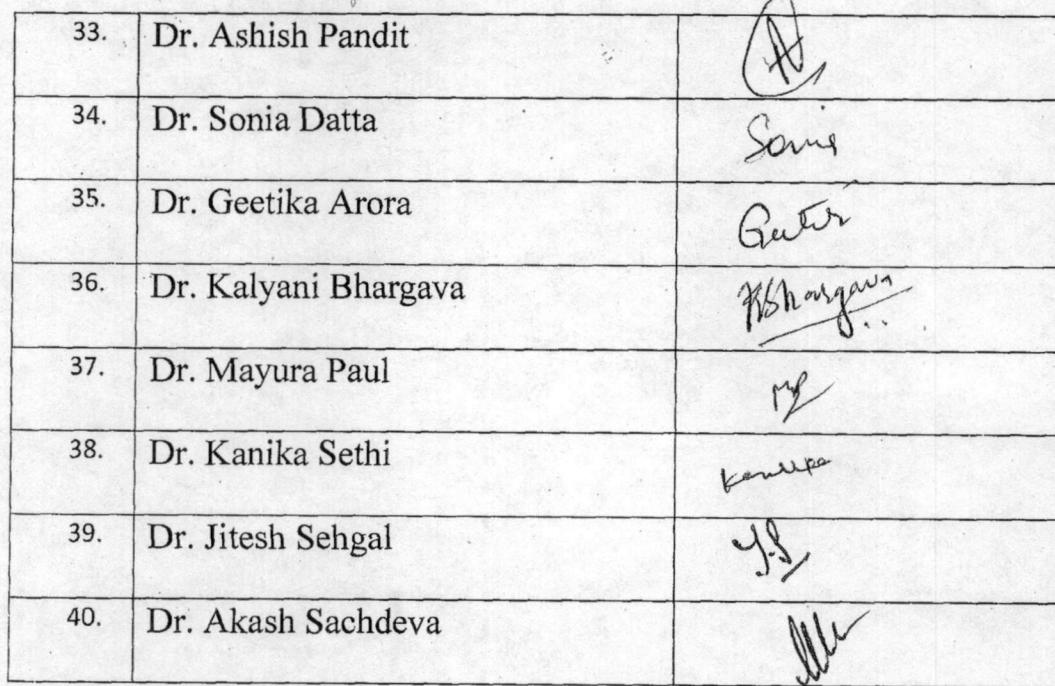 33. Dr. Ashish Pandit
34. Dr. Sonia Datta Sonia
35. Dr. Geetika Arora
36. Dr. Kalyani Bhargava KBhargava
37. Dr. Mayura Paul MP
38. Dr. Kanika Sethi Kanika
39. Dr. Jitesh Sehgal J.S
40. Dr. Akash Sachdeva